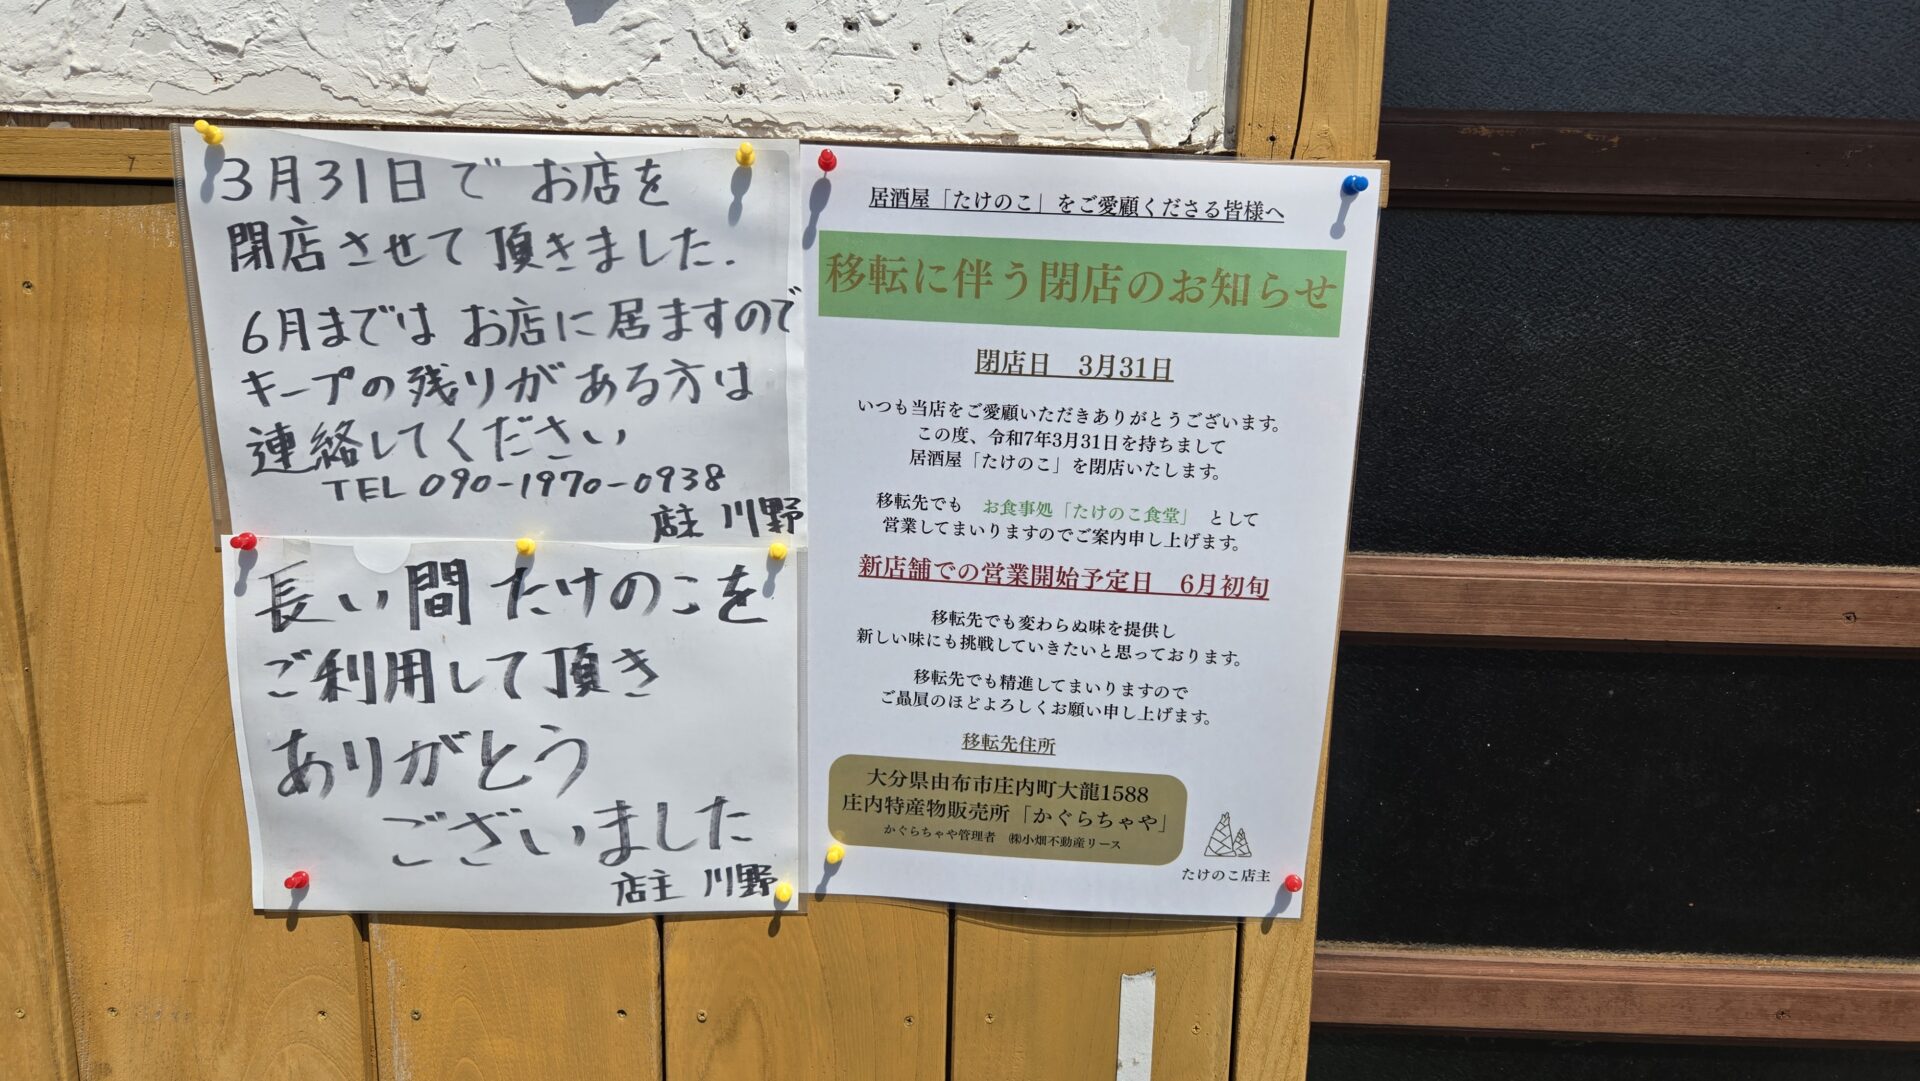 3月31日でお店を
閉店させて頂きました.
6月まではお店に居ますので
キープの残りがある方は
連絡してください
TEL 090-1970-0938
店主 川野
長い間たけのこを
ご利用して頂き
ありがとう
ございました
店主 川野
居酒屋「たけのこ」をご愛顧くださる皆様へ
移転に伴う閉店のお知らせ
閉店日 3月31日
いつも当店をご愛顧いただきありがとうございます。
この度、令和7年3月31日を持ちまして
居酒屋「たけのこ」を閉店いたします。
移転先でも お食事処「たけのこ食堂」 として
営業してまいりますのでご案内申し上げます。
新店舗での営業開始予定日 6月初旬
移転先でも変わらぬ味を提供し
新しい味にも挑戦していきたいと思っております。
移転先でも精進してまいりますので
ご贔屓のほどよろしくお願い申し上げます。
移転先住所
大分県由布市庄内町大龍1588
庄内特産物販売所「かぐらちゃや」
かぐらちゃや管理者 ㈱小畑不動産リース
たけのこ店主